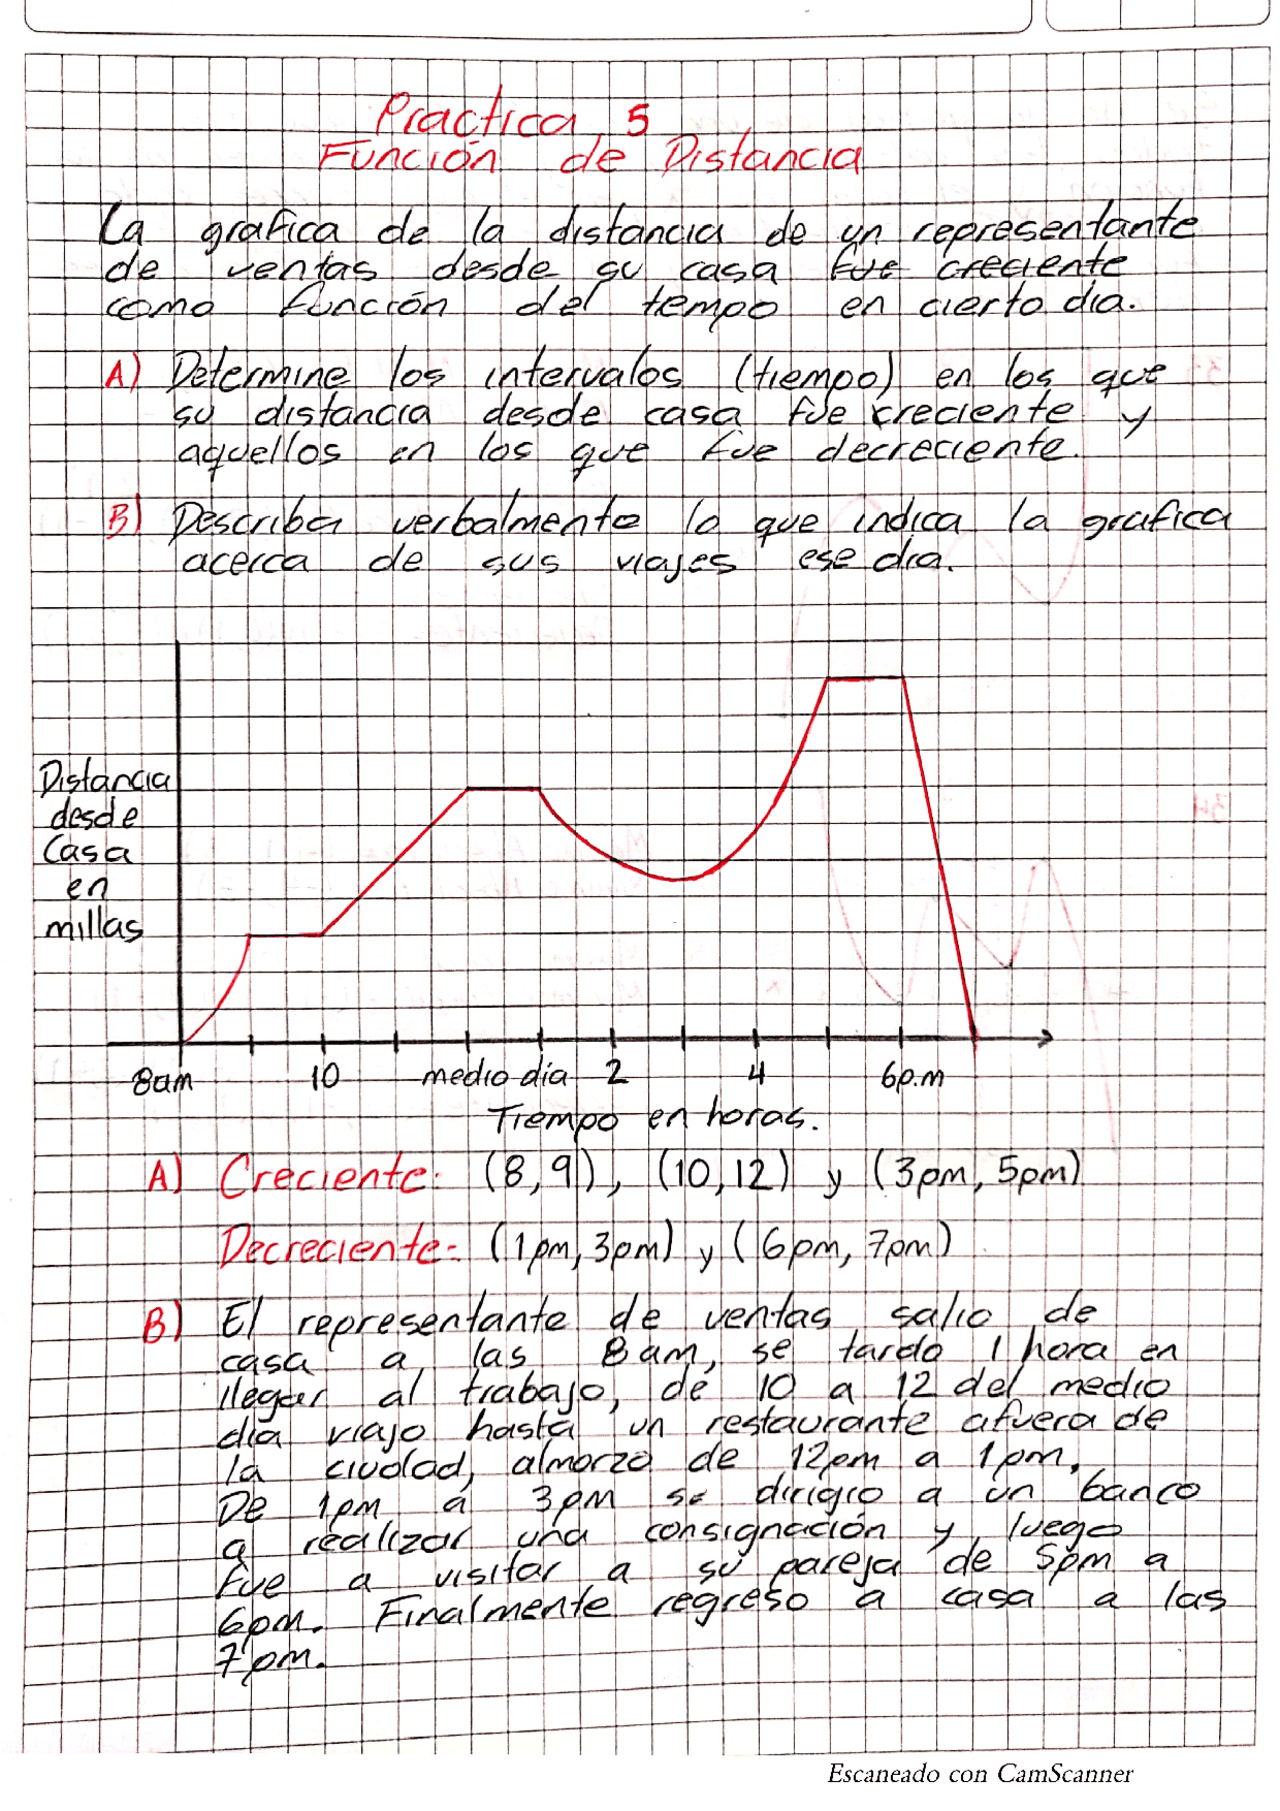 Practica 5
Función de Distancia
La grafica de la distancia de un representante
de ventas desde su casa fue creciente
como función del tempo en cierto dia.
A) Determine los intervalos (tiempo) en los que
su distancia desde casa fue creciente y
aquellos en los que fue decreciente.
B) Describa verbalmente lo que indica la grafica
acerca de sus viajes ese dia.
Distancia
desde
Casa
en
millas
8am 10 medio dia 2 4 6p.m
Tiempo en horas.
A) Creciente: (8,9), (10,12) y (3pm, 5pm)
Decreciente: (1pm, 3pm) y (6pm, 7pm)
B) El representante de ventas salio de
casa a las 8am, se tardo 1 hora en
llegar al trabajo, de 10 a 12 del medio
dia viajo hasta un restaurante afuera de
la ciudad, almorzo de 12pm a 1pm.
De 1pm a 3pm se dirigio a un banco
a realizar una consignación y luego
fue a visitar a su pareja de 5pm a
6pm. Finalmente regreso a casa a las
7pm.
Escaneado con CamScanner